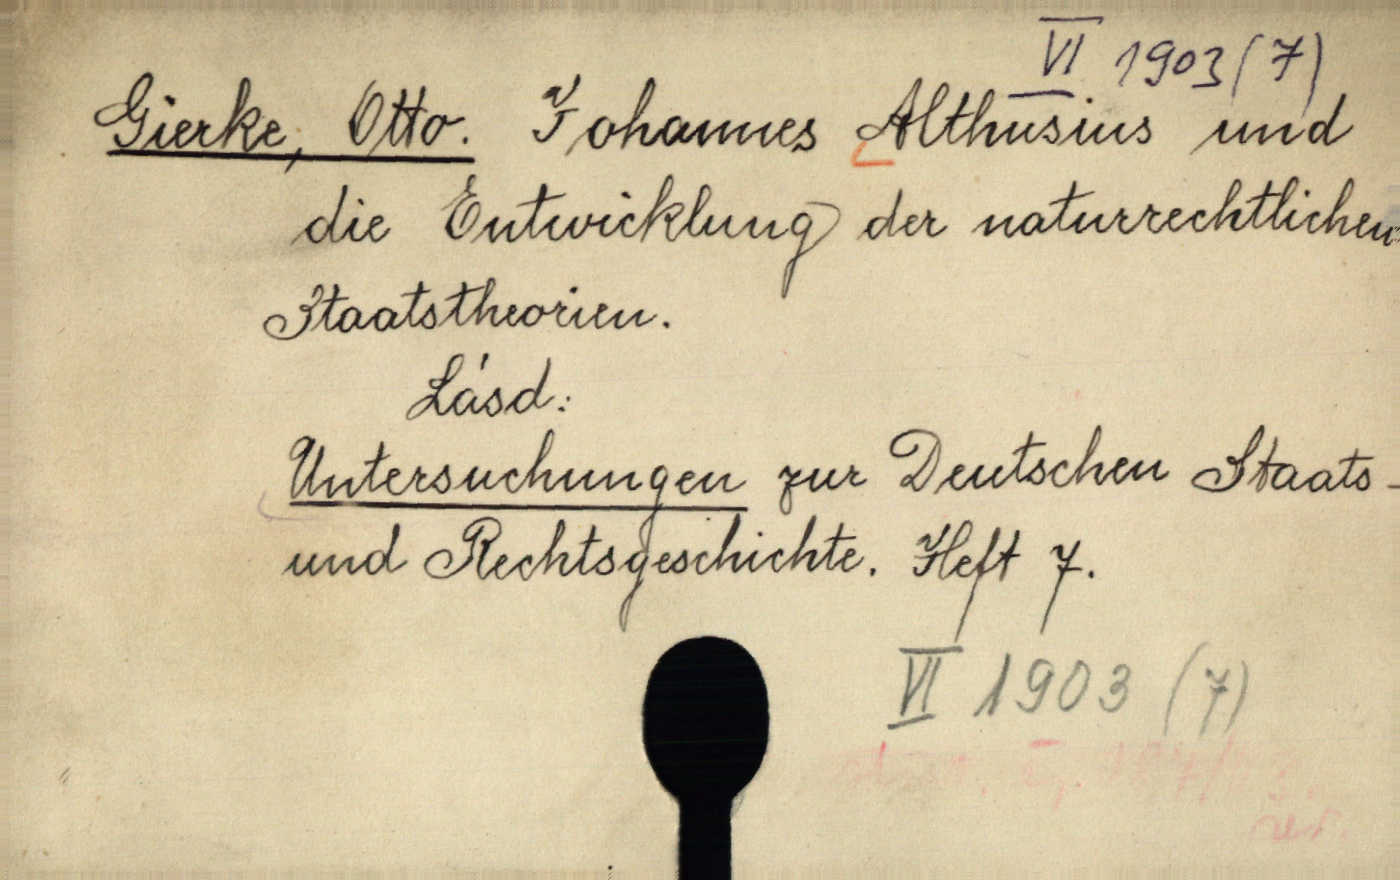 VI 1903 (7)
Gierke, Otto. Johannes Althusius und
die Entwicklung der naturrechtlichen
Staatstheorien.
Lásd:
Untersuchungen zur Deutschen Staats-
und Rechtsgeschichte. Heft 7.
VI 1903 (7)